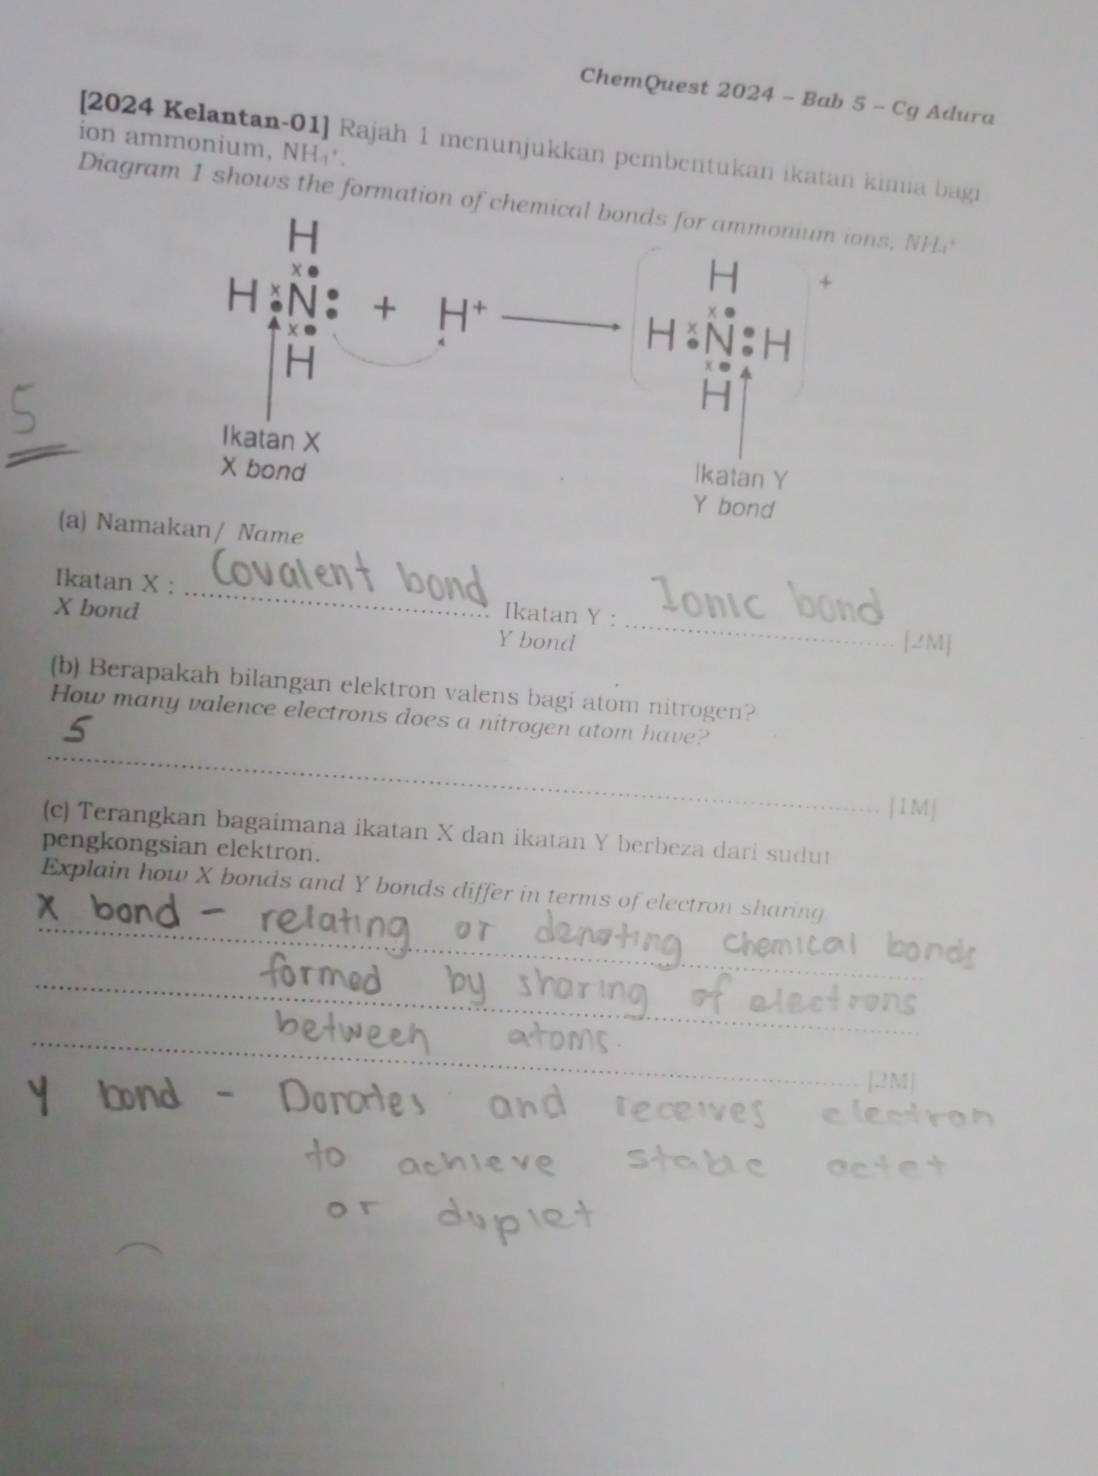 ChemQuest 2024 - Bab 5 - Cg Adura
[2024 Kelantan-01] Rajah 1 menunjukkan pembentukan ikatan kimia bagi
ion ammonium, NH₄⁺.
Diagram 1 shows the formation of chemical bonds for ammonium ions, NH₄⁺
H H +
H N + H⁺ H N H
H H
5
Ikatan X
X bond
Ikatan Y
Y bond
(a) Namakan/ Name
Ikatan X : Covalent bond Ikatan Y : Ionic bond
X bond Y bond [2M]
(b) Berapakah bilangan elektron valens bagi atom nitrogen?
How many valence electrons does a nitrogen atom have?
5
[1M]
(c) Terangkan bagaimana ikatan X dan ikatan Y berbeza dari sudut
pengkongsian elektron.
Explain how X bonds and Y bonds differ in terms of electron sharing
X bond - relating or denoting chemical bonds
formed by sharing of electrons
between atoms.
[2M]
Y bond - and receives electron
to achieve stable octet
or duplet